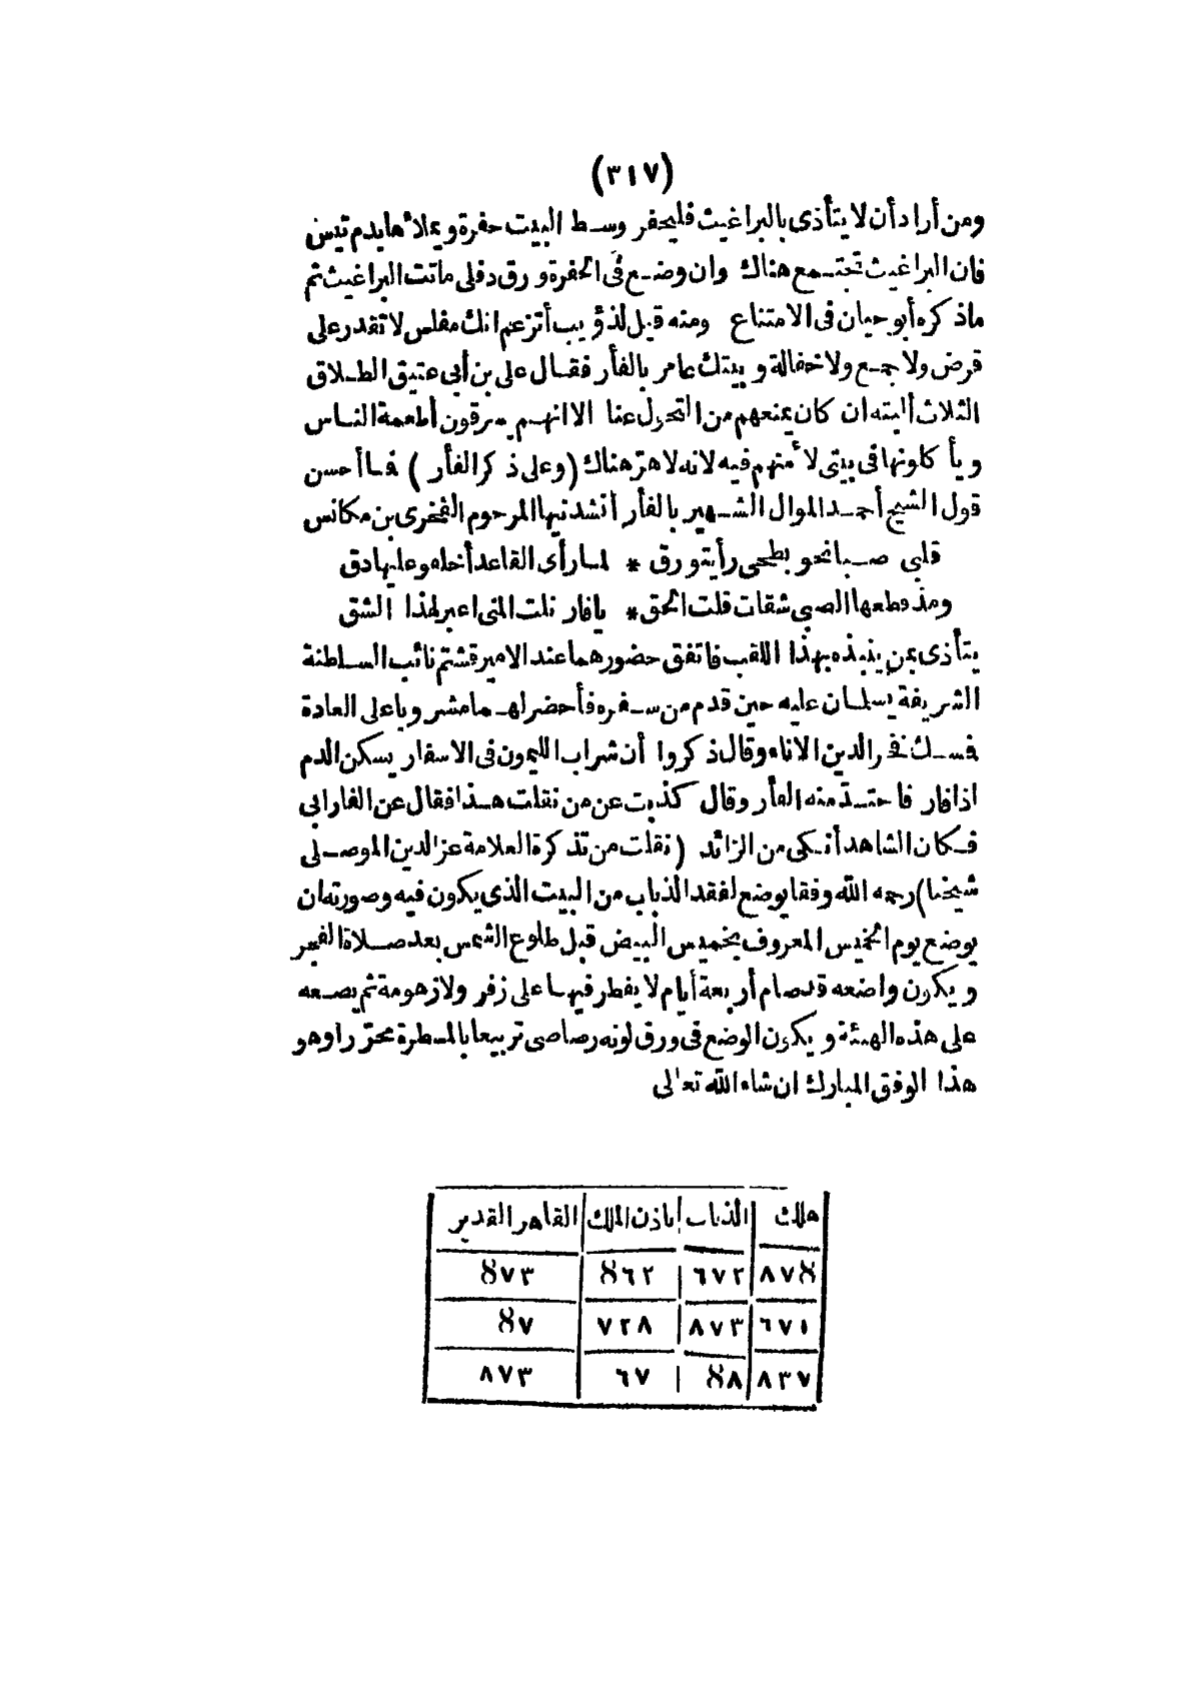 (٣١٧)
ومن أراد أن لا يتأذى بالبراغيث فليحفر وسط البيت حفرة ويملأها بدم تيس
فان البراغيث تجتمع هناك وان وضع فى الحفرة ورق دفلى ماتت البراغيث تم
ماذكره أبو حيان فى الامتناع ومنه قيل لذؤيب أتزعم انك مفلس لا تقدر على
قرض ولا جمع ولا نخالة وبيتك عامر بالفأر فقال على بن أبى عتيق الطلاق
الثلاث ألبته ان كان يمنعهم من التحول عنا الا انهم يسرقون أطعمة الناس
ويأكلونها فى بيتى لأمنهم فيه لانه لا هر هناك (وعلى ذكر الفأر) فما أحسن
قول الشيخ أحمد الموال الشهير بالفأر أنشدنيها المرحوم الفخرى بن مكانس
قلبى صبا نحو بطحى رأيتو رق * لما رأى القاعد أخلهو عليها دق
ومذ قطعها الصبى شقات قلت الحق * يا فار نلت المنى اعبر لهذا الشق
يتأذى بمن ينبذه بهذا اللقب فاتفق حضورهما عند الامير قشتم نائب السلطنة
الشريفة يسلمان عليه حين قدم من سفره فأحضر لهما مشروبا على العادة
فمسك فخر الدين الاناء وقال ذكروا أن شراب الليمون فى الاسفار يسكن الدم
اذا فار فاحتد منه الفأر وقال كذبت عن من نقلت هذا فقال عن الفارابى
فكان الشاهد أنكى من الزائد (نقلت من تذكرة العلامة عز الدين الموصلى
شيخنا) رحمه الله وفقا يوضع لفقد الذباب من البيت الذى يكون فيه وصورته ان
يوضع يوم الخميس المعروف بخميس البيض قبل طلوع الشمس بعد صلاة الفجر
ويكون واضعه قد صام أربعة أيام لا يفطر فيها على زفر ولا زهومة ثم يضعه
على هذه الهيئة ويكون الوضع فى ورق لونه رصاصى تربيعا بالمسطرة محررا وهو
هذا الوفق المبارك ان شاء الله تعالى
هلك الذباب باذن الملك القاهر القدير
٨٧٤ ٦٧٢ ٤٦٢ ٤٧٣
٦٧١ ٨٧٣ ٧٢٨ ٤٧
٨٣٧ ٤٨ ٦٧ ٨٧٣